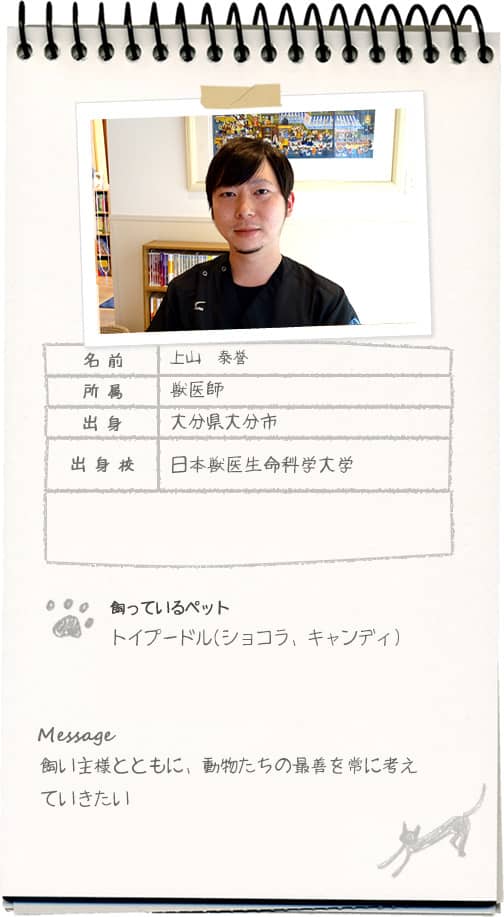 名前 上山 泰誉
所属 獣医師
出身 大分県大分市
出身校 日本獣医生命科学大学
飼っているペット
トイプードル(ショコラ、キャンディ)
Message
飼い主様とともに、動物たちの最善を常に考え
ていきたい